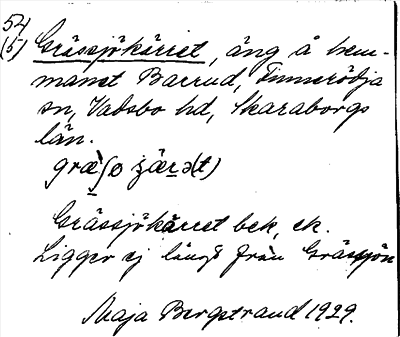 54
(5) Grässjökärret, äng å hem-
manet Barrud, Finnerödja
sn, Vadsbo hd, Skaraborgs
län.
græ̀ʃø ʒærə(t)
Grässjökärret bek, ek.
Ligger ej långt från Grässjön
Maja Bergstrand 1929.